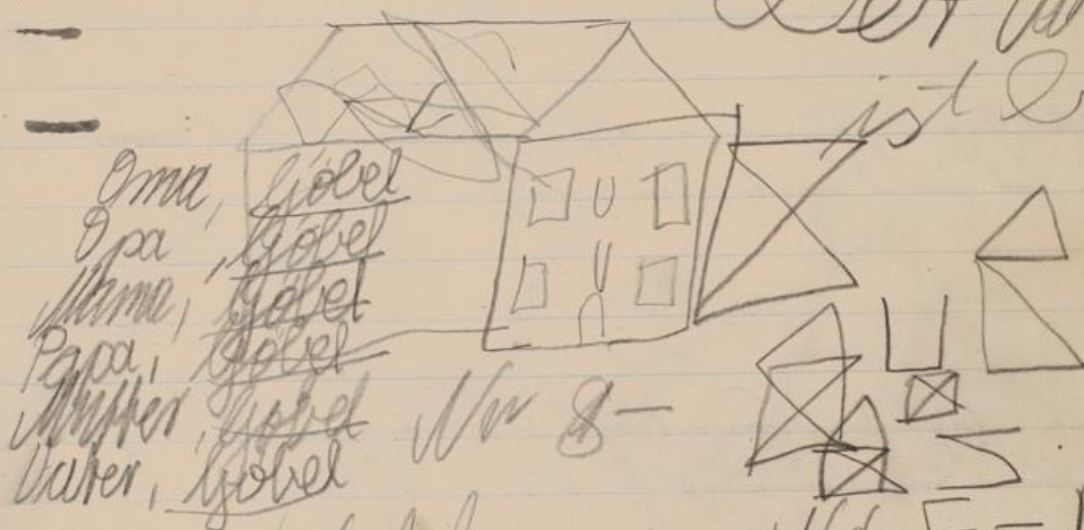 ist
Oma, Göbel
Opa, Göbel
Mama, Göbel
Papa, Göbel
Mutter, Göbel
Vater, Göbel
Nr 8-